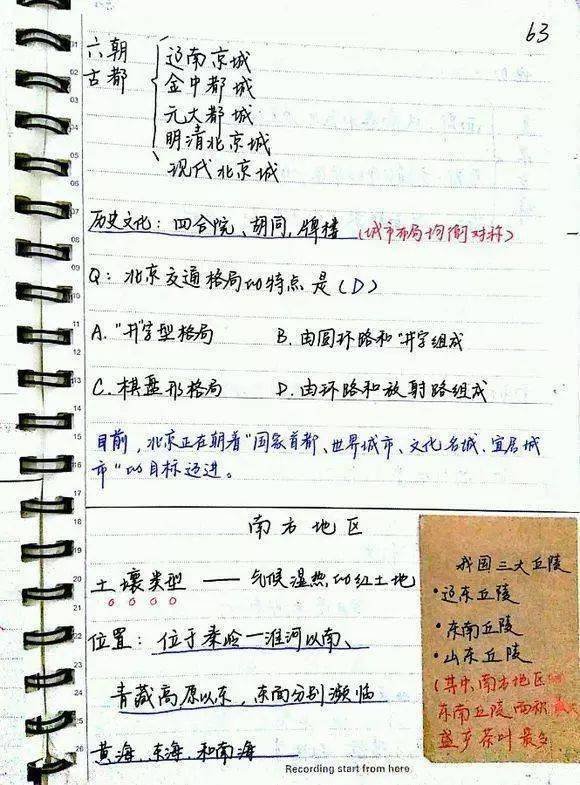 63
六朝古都
辽南京城
金中都城
元大都城
明清北京城
现代北京城
历史文化：四合院、胡同、牌楼（城市布局均衡对称）
Q：北京交通格局的特点是（D）
A."井"字型格局 B.由圆环路和"井"字组成
C.棋盘形格局 D.由环路和放射路组成
目前，北京正在朝着"国家首都、世界城市、文化名城、宜居城
市"的目标迈进。
南方地区
土壤类型 —— 气候湿热的红土地
位置：位于秦岭—淮河以南、
青藏高原以东，东面分别濒临
黄海、东海、和南海
我国三大丘陵
·辽东丘陵
·东南丘陵
·山东丘陵
（其中，南方地区
东南丘陵面积
盛产茶叶最多
Recording start from here